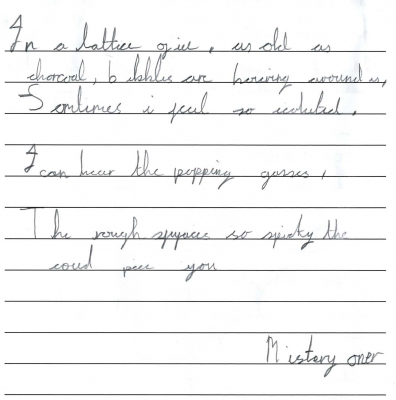 In a lattice of ice, as old as
charcoal, bubbles are hovering around us,
Somtimes i feel so secluded.
I can hear the popping gasses,
The rough surfaces so spicky the
coud pirce you
Mistery oner